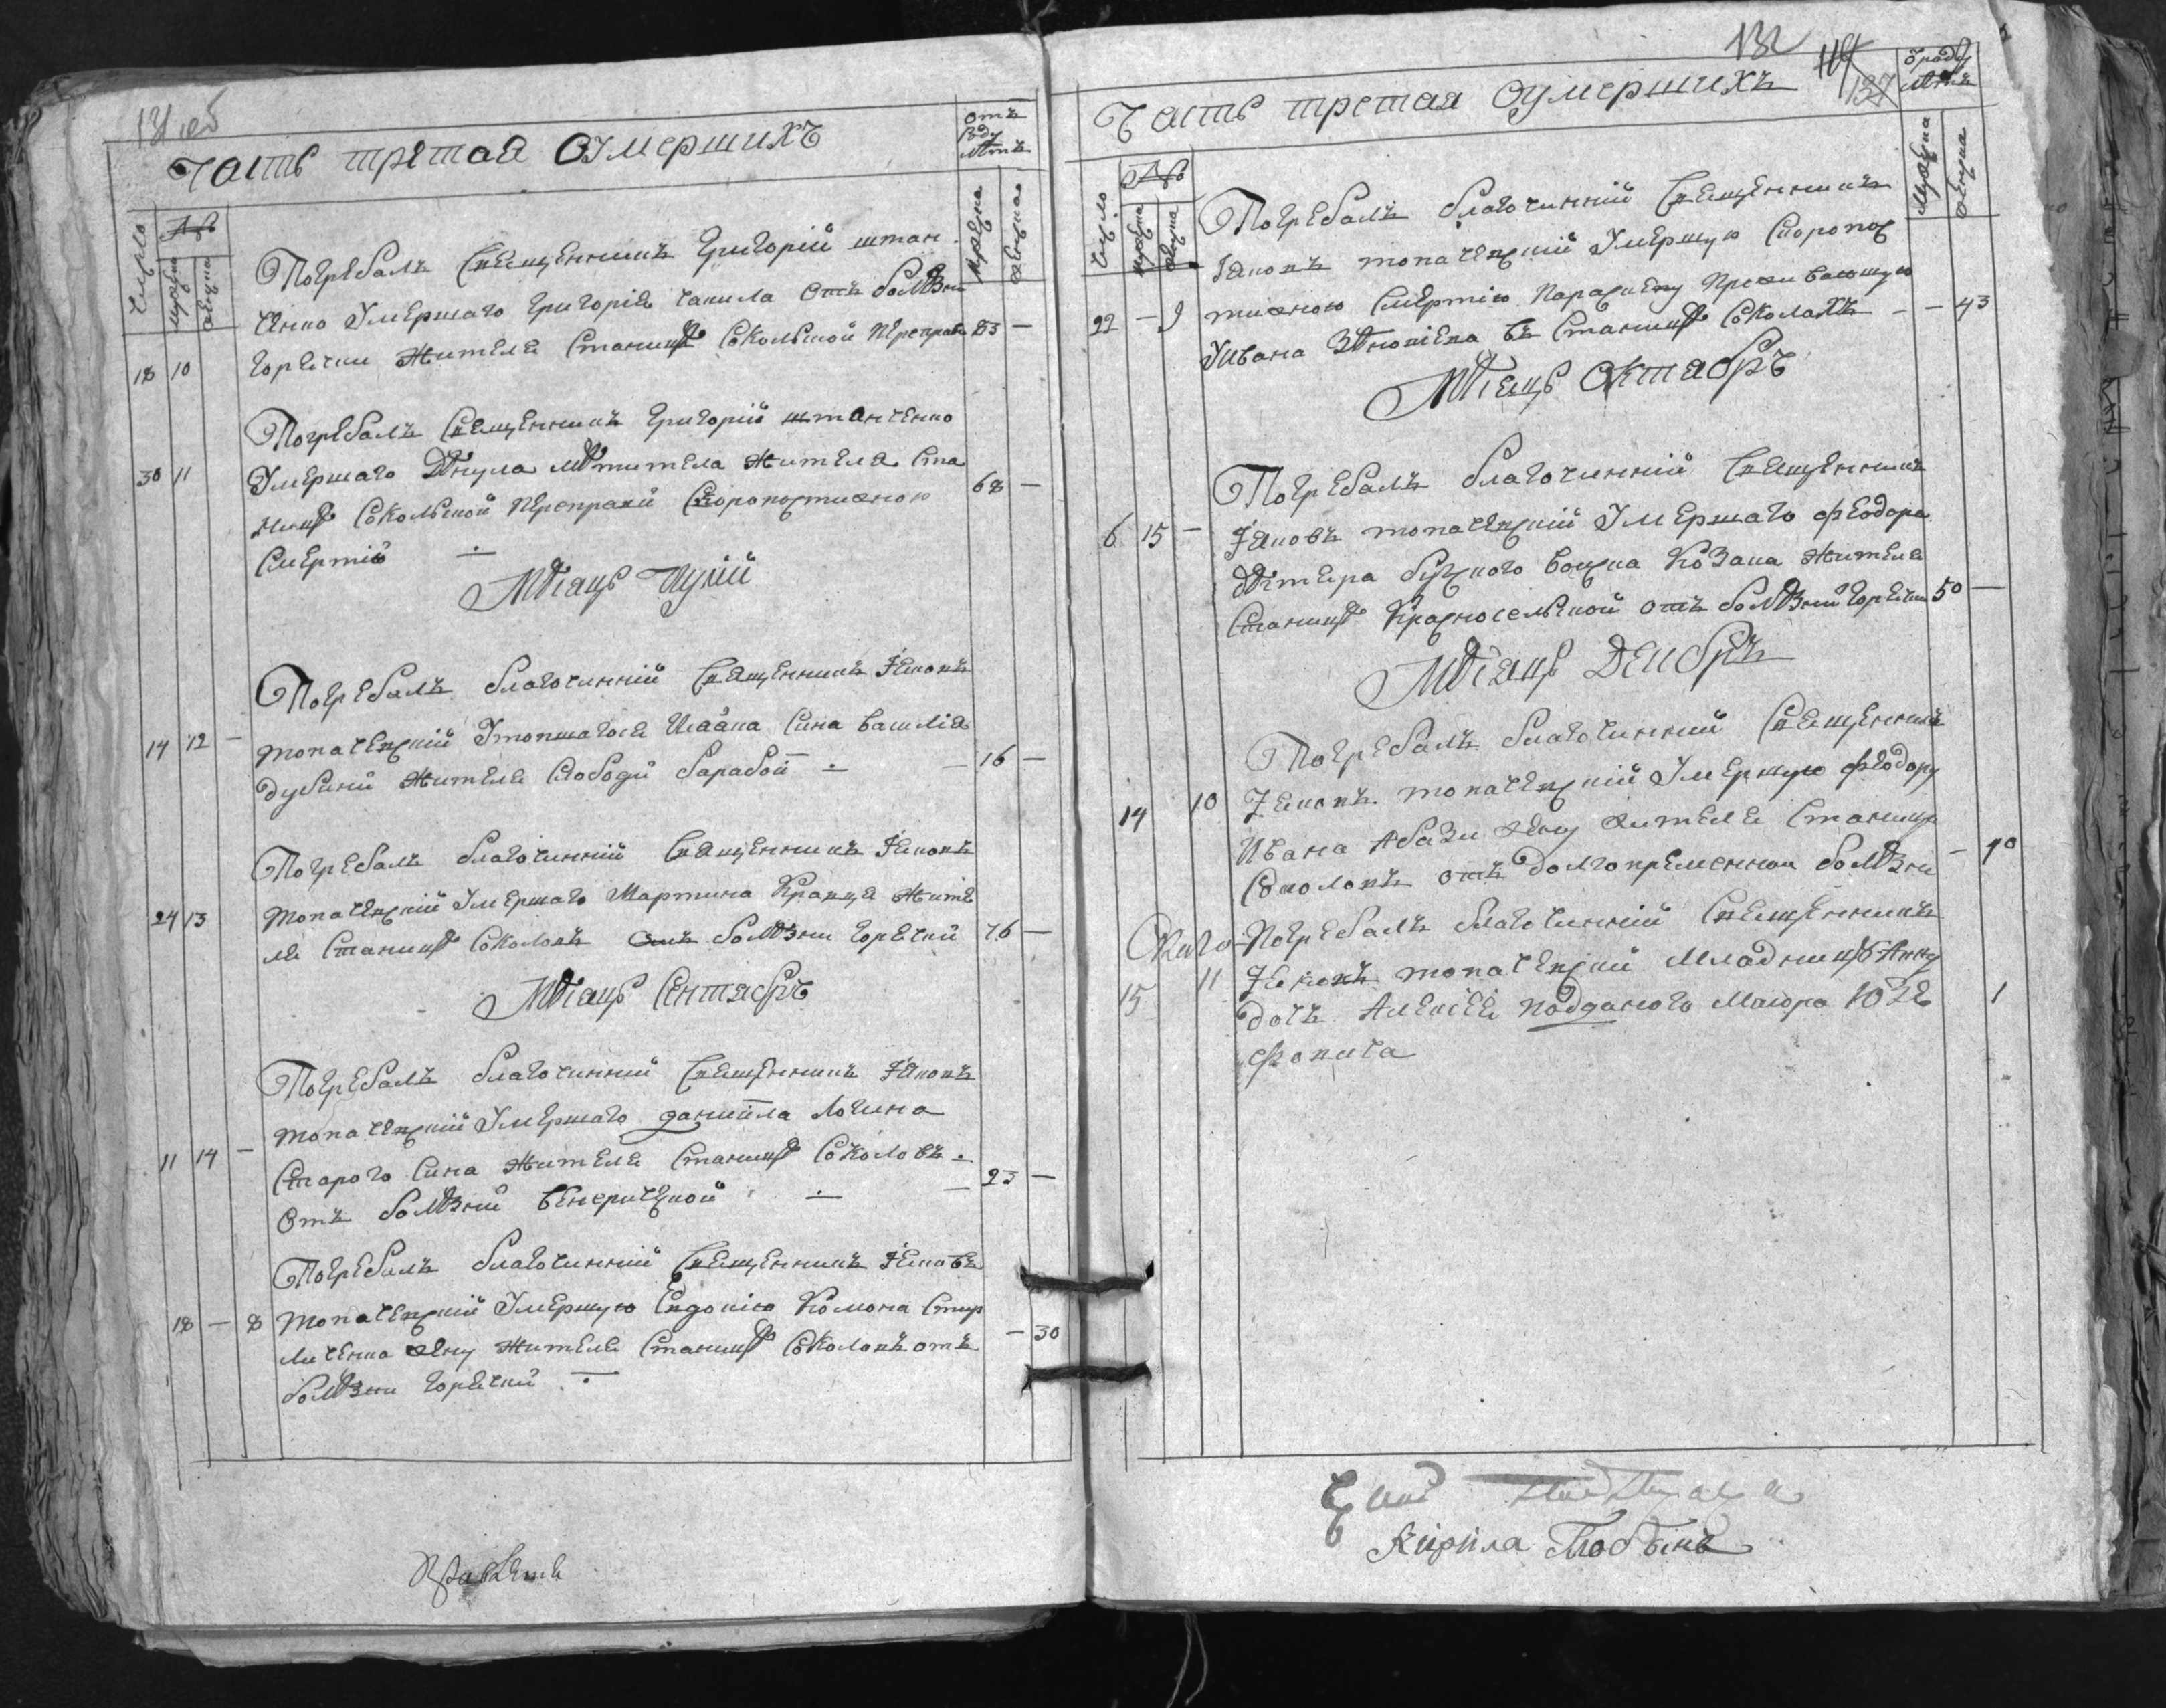 131 об
Часть третая Оумершихъ
отъ роду лѣтъ
Число
мужеска
женска
мужеска
женска
Погребалъ Священникъ Григорій штан
ченко Умершаго Григорія Чапила Отъ болѣзни
18 10 горячки Жителя Станицѣ Сокольской Переправи 83 —
Погребалъ Священникъ Григорій штанченко
30 11 Умершаго Жителя Ста
ницѣ Сокольской Переправи Скоропостижною 68 —
Смертію
Мѣсяцъ Іулій
Погребалъ благочинній Священникъ Іяковъ
14 12 — топачевскій Утопшагося Исаака Сина Василія
дубини Жителя Слободи барабой — 16 —
Погребалъ благочинній Священникъ Іяковъ
24 13 топачевскій Умершаго Мартина Кравца Жите
ля Станицѣ Соколовъ Отъ болѣзни горячки 76 —
Мѣсяцъ Сентябръ
Погребалъ благочинній Священникъ Іяковъ
топачевскій Умершаго даниила Логина
11 14 — Старого Сина Жителя Станицѣ Соколовъ
Отъ болѣзни венерической — 23 —
Погребалъ благочинній Священникъ Іяковъ
18 — 8 топачевскій Умершую Евдокію Комона Стир
личенка жену Жителя Станицѣ Соколовъ отъ — 30
болѣзни горячки
132
137
Часть третая Оумершихъ
Число
мужеска
женска
мужеска
женска
Погребалъ благочинній Священникъ
Іяковъ топачевскій Умершую Скоропос
22 — 9 тижною Смертію Параскеву Проживающую
Ивана въ Станицѣ Соколахъ — — 43
Мѣсяцъ Октябръ
Погребалъ благочинній Священникъ
6 15 — Іяковъ топачевскій Умершаго Феодора
бугского войска Козака Жителя
Станицѣ Красносельской Отъ болѣзни горячки 50 —
Мѣсяцъ Декабръ
Погребалъ благочинній Священникъ
14 10 Іяковъ топачевскій Умершую Феодору
Ивана Абази жену жителя Станицѣ
Соколовъ отъ долговременной болѣзни — 40
Оного Погребалъ благочинній Священникъ
15 11 Іяковъ топачевскій Младеницѣ Анну
дочь Алексѣя подданого Маіора 1
Кирила